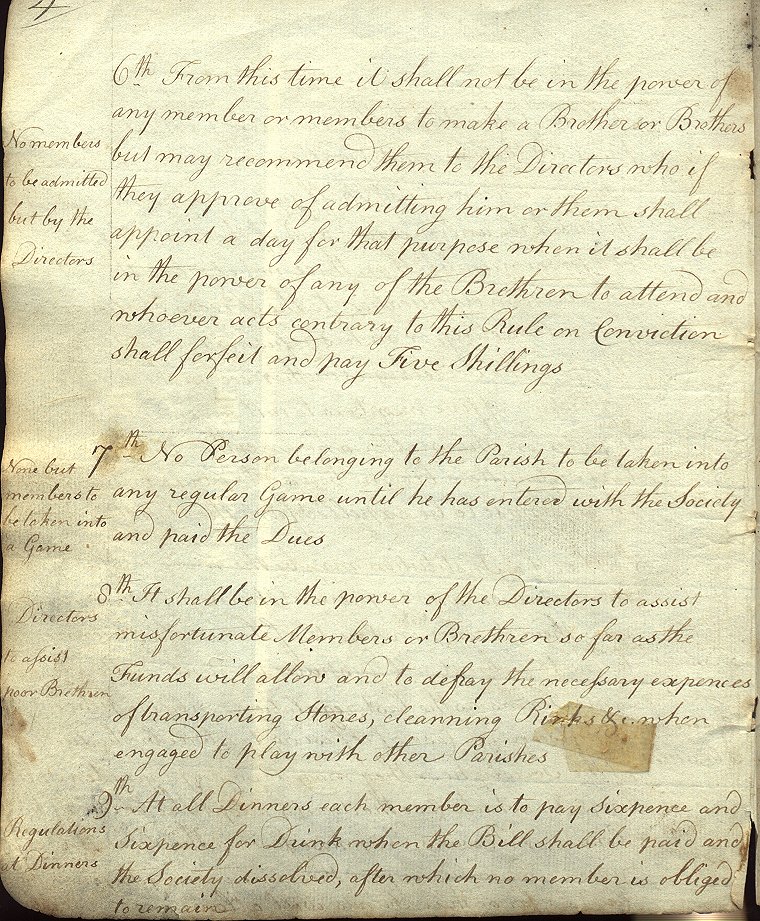 4
6th From this time it shall not be in the power of
any member or members to make a Brother or Brothers
but may recommend them to the Directors who if
they approve of admitting him or them shall
appoint a day for that purpose when it shall be
in the power of any of the Brethren to attend and
whoever acts contrary to this Rule on Conviction
shall forfeit and pay Five Shillings
No members
to be admitted
but by the
Directors
7th No Person belonging to the Parish to be taken into
any regular Game until he has entered with the Society
and paid the Dues
None but
members to
be taken into
a Game
8th It shall be in the power of the Directors to assist
misfortunate Members or Brethren so far as the
Funds will allow and to defray the necessary expences
of transporting Stones, cleanning Rinks &c. when
engaged to play with other Parishes
Directors
to assist
poor Brethren
9th At all Dinners each member is to pay Sixpence and
Sixpence for Drink when the Bill shall be paid and
the Society dissolved, after which no member is obliged
to remain
Regulations
at Dinners